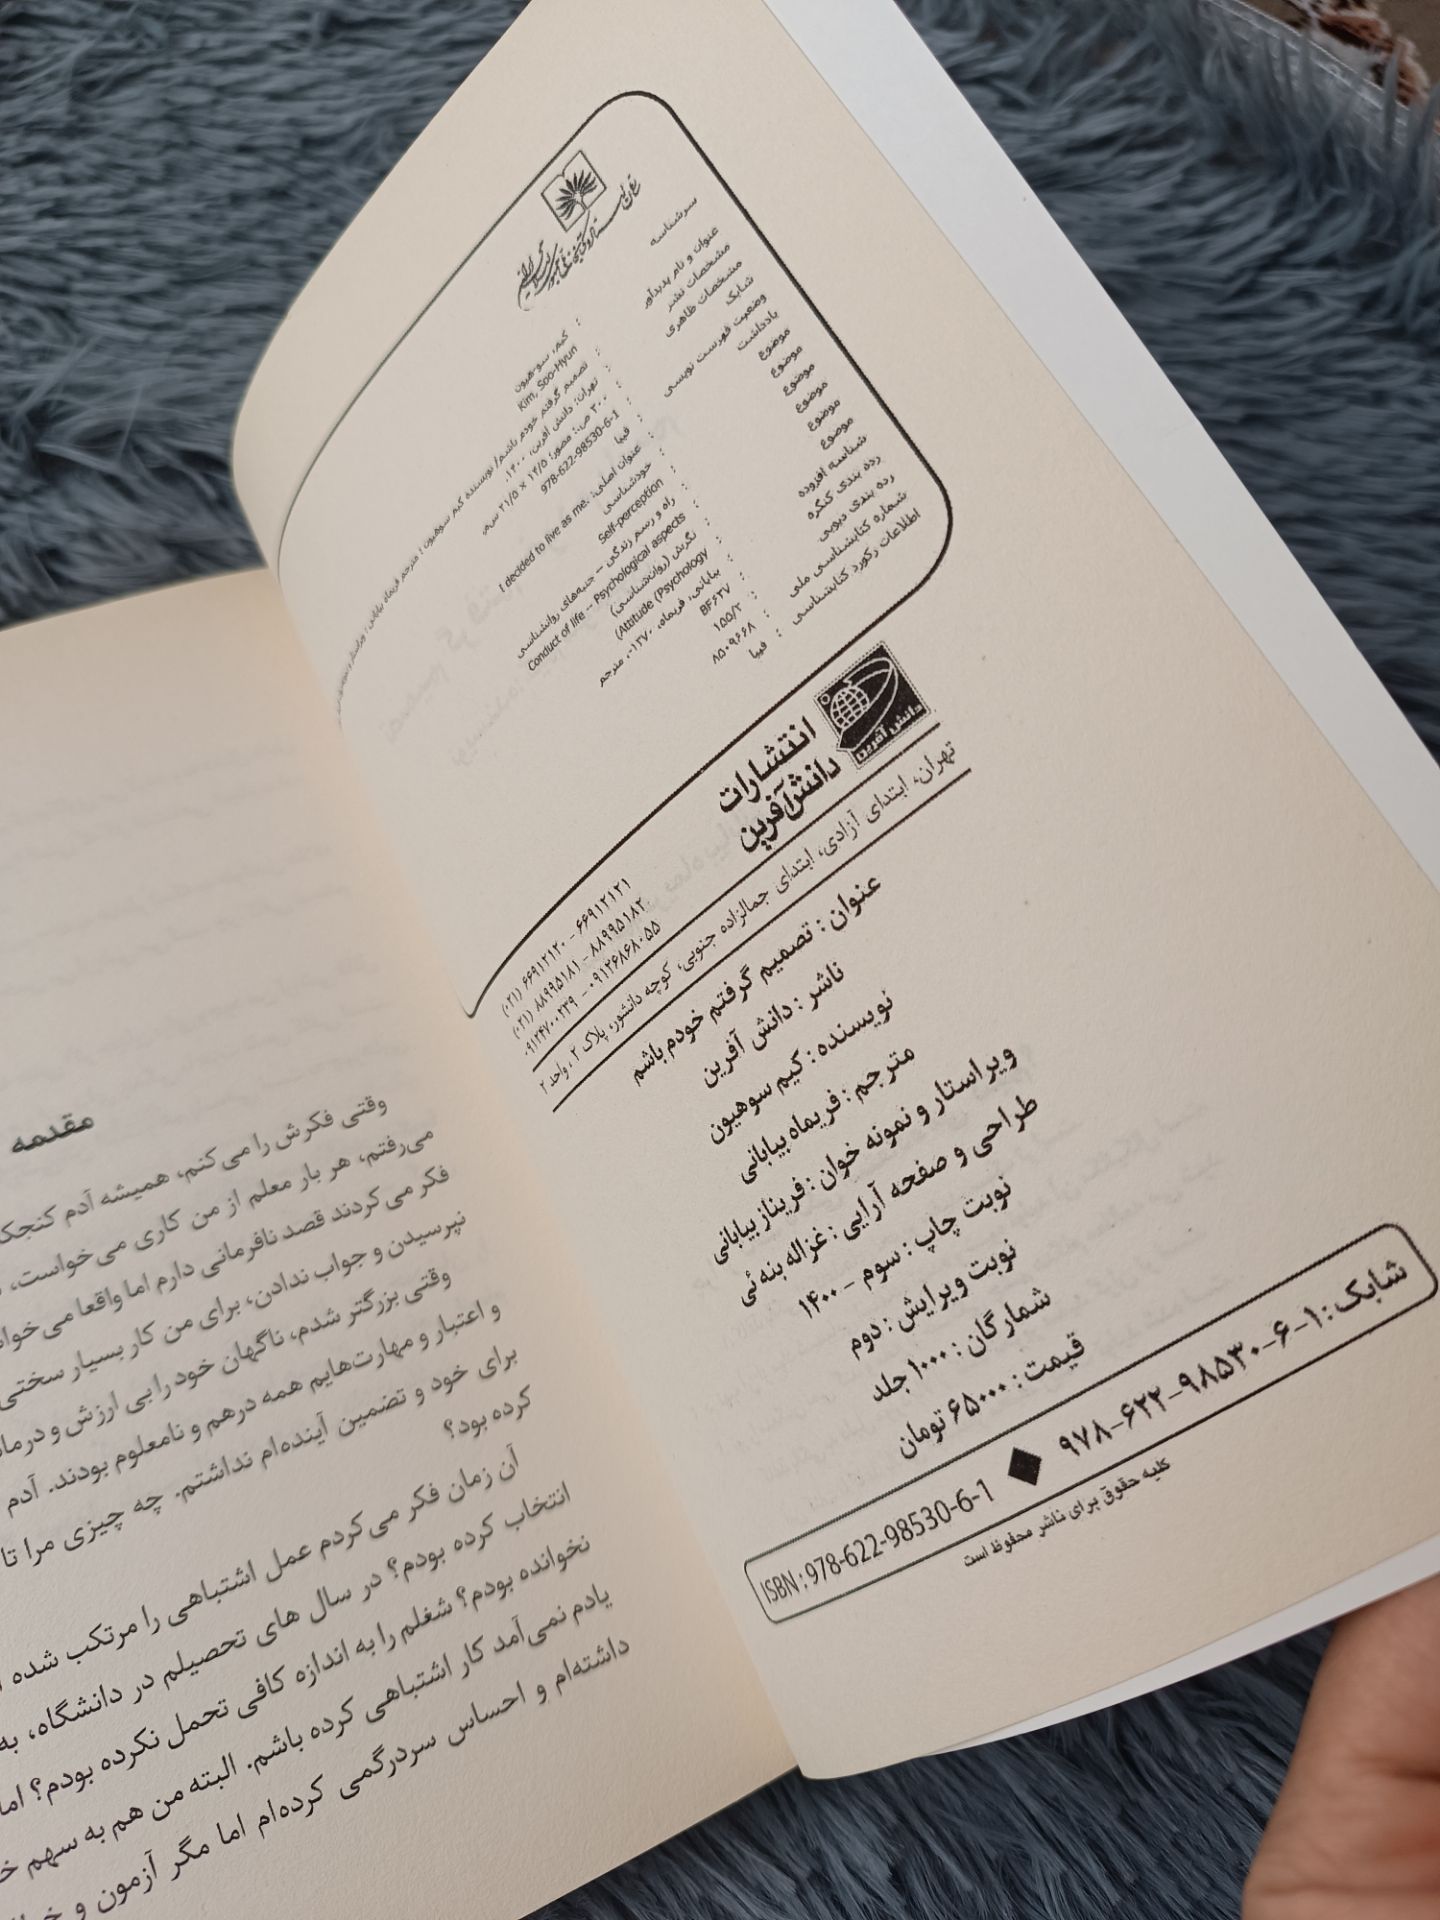 سرشناسه : کیم، سو-هیون
Kim, Soo-Hyun
عنوان و نام پدیدآور : تصمیم گرفتم خودم باشم/ نویسنده کیم سوهیون ؛ مترجم فریماه بیابانی؛
مشخصات نشر : تهران: دانش آفرین، ۱۴۰۰.
مشخصات ظاهری : ۳۰۰ ص.: مصور؛ ۱۴/۵ × ۲۱/۵ س‌م.
شابک : 978-622-98530-6-1
وضعیت فهرست نویسی : فیپا
یادداشت : عنوان اصلی: I decided to live as me.
موضوع : خودشناسی
موضوع : Self-perception
موضوع : راه و رسم زندگی -- جنبه‌های روانشناسی
موضوع : Conduct of life -- Psychological aspects
موضوع : نگرش (روان‌شناسی)
موضوع : Attitude (Psychology)
شناسه افزوده : بیابانی، فریماه، ۱۳۷۰-، مترجم
رده بندی کنگره : BF۶۳۷
رده بندی دیویی : ۱۵۵/۲
شماره کتابشناسی ملی : ۸۵۰۹۶۶۸
اطلاعات رکورد کتابشناسی : فیپا
دانش آفرین
انتشارات
دانش‌آفرین
(۰۲۱) ۶۶۹۱۲۱۲۰ - ۶۶۹۱۲۱۲۱
(۰۲۱) ۸۸۹۹۵۱۸۱ - ۸۸۹۹۵۱۸۲
۰۹۱۲۴۷۰۰۲۳۹ - ۰۹۱۲۶۸۶۸۰۵۵
تهران، ابتدای آزادی، ابتدای جمالزاده جنوبی، کوچه دانشور، پلاک ۲، واحد ۲
عنوان : تصمیم گرفتم خودم باشم
ناشر : دانش آفرین
نویسنده : کیم سوهیون
مترجم : فریماه بیابانی
ویراستار و نمونه خوان : فریناز بیابانی
طراحی و صفحه آرایی : غزاله بنه‌ئی
نوبت چاپ : سوم - ۱۴۰۰
نوبت ویرایش : دوم
شمارگان : ۱۰۰۰ جلد
قیمت : ۶۵۰۰۰ تومان
شابک : ۱-۶-۹۸۵۳۰-۶۲۲-۹۷۸ ◆ ISBN : 978-622-98530-6-1
کلیه حقوق برای ناشر محفوظ است
مقدمه
وقتی فکرش را می‌کنم، همیشه آدم
می‌رفتم، هر بار معلم از من کاری می‌خواست،
فکر می‌کردند قصد نافرمانی دارم اما واقعا
نپرسیدن و جواب ندادن، برای من کار بسیار سختی
وقتی بزرگتر شدم، ناگهان خود را بی ارزش و
و اعتبار و مهارت‌هایم همه درهم و نامعلوم بودند. آدم
برای خود و تضمین آینده‌ام نداشتم. چه چیزی مرا تا
کرده بود؟
آن زمان فکر می‌کردم عمل اشتباهی را مرتکب شده
انتخاب کرده بودم؟ در سال های تحصیلم در دانشگاه، به
نخوانده بودم؟ شغلم را به اندازه کافی تحمل نکرده بودم؟ اما
یادم نمی‌آمد کار اشتباهی کرده باشم. البته من هم به سهم
داشته‌ام و احساس سردرگمی کرده‌ام اما مگر آزمون و